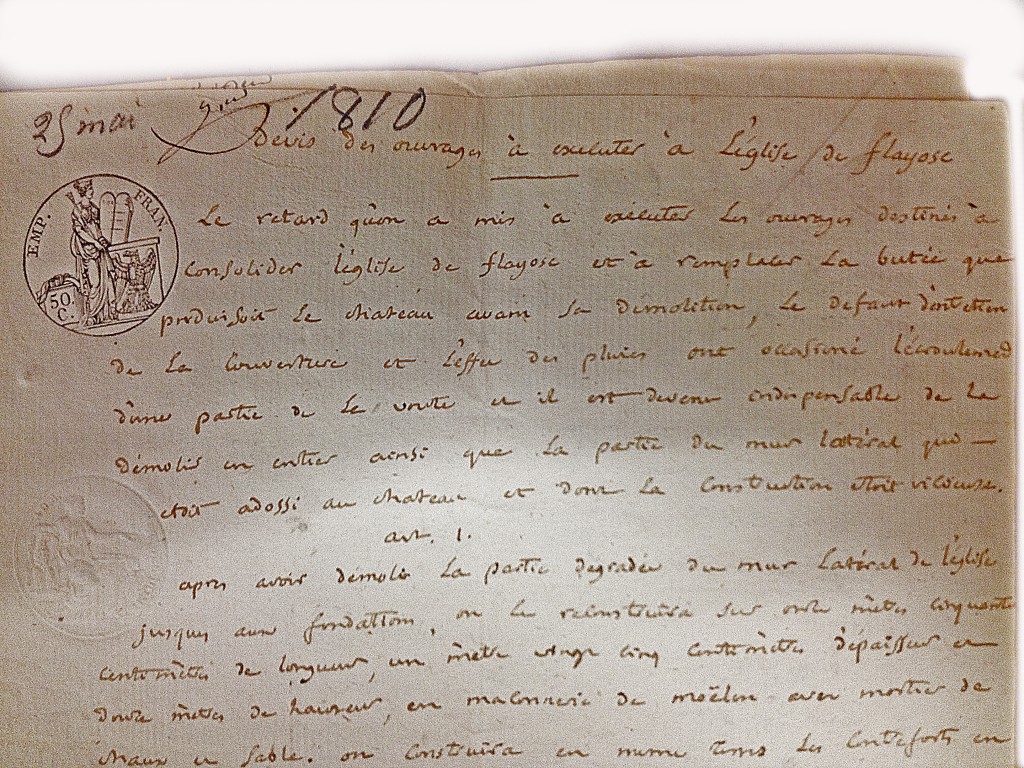 25 mai 1810
Devis des ouvrages à executer à L'église de flayosc
EMP. FRAN.
50. C.
Le retard qu'on a mis à exécuter les ouvrages destinés à
Consolider l'église de flayosc et à remplacer La butée que
produisoit Le chateau avant sa démolition, Le defaut d'entretien
de La Couverture et L'effet des pluies ont occasioné l'écroulement
d'une partie de La voute et il est devenu indispensable de la
démolir en entier ainsi que La partie du mur latéral qui —
etoit adossé au chateau et dont La Construction étoit vicieuse.
art. 1.
apres avoir démoli La partie degradée du mur Latéral de l'église
jusques aux fondations, on Le reconstruira sur onze mètres cinquante
centimètres de longueur, un mètre vingt cinq centimètres d'épaisseur et
douze mètres de hauteur, en maconnerie de moëlon avec mortier de
chaux et sable. on Construira en meme tems Les Contreforts en